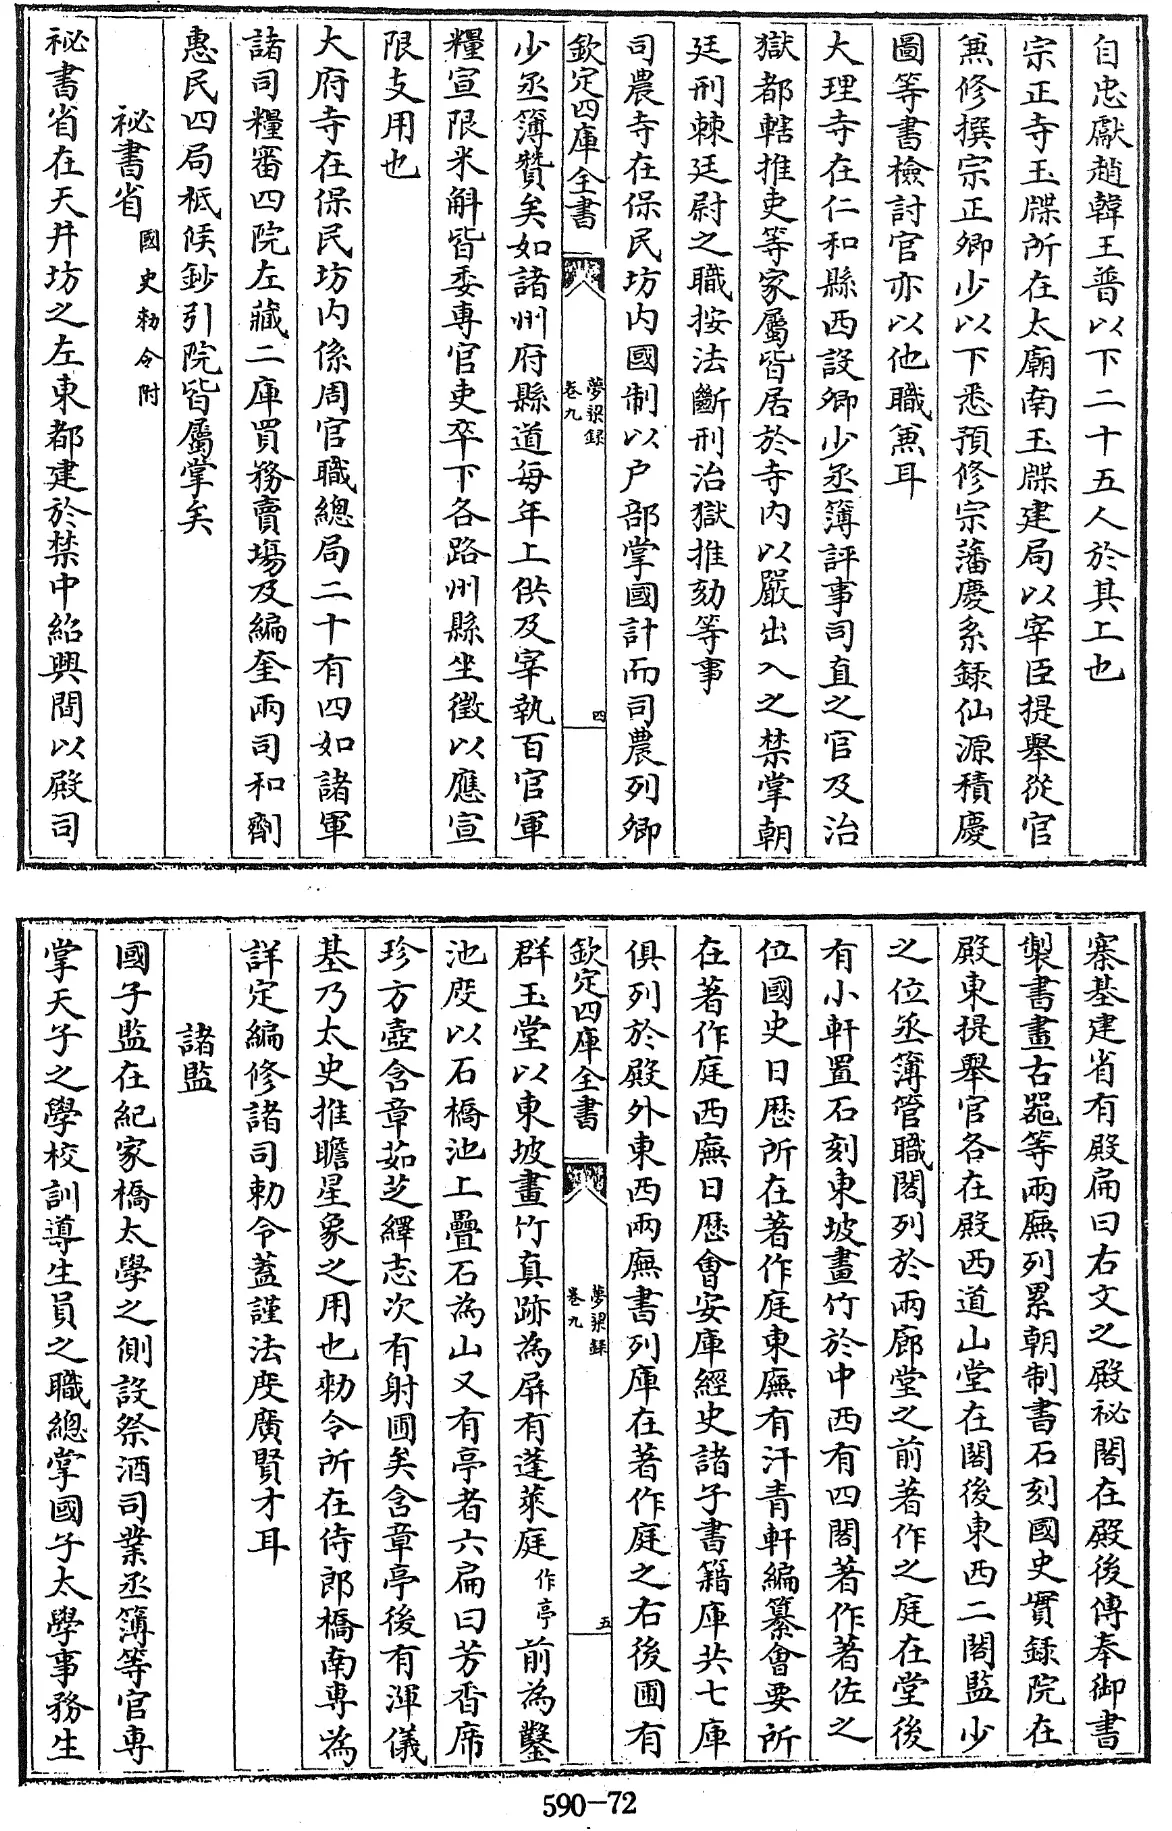 自忠獻趙韓王普以下二十五人於其上也
宗正寺玉牒所在太廟南玉牒建局以宰臣提舉從官
兼修撰宗正卿少以下悉預修宗藩慶系錄仙源積慶
圖等書檢討官亦以他職兼耳
大理寺在仁和縣西設卿少丞簿評事司直之官及治
獄都轄推吏等家屬皆居於寺內以嚴出入之禁掌朝
廷刑棘廷尉之職按法斷刑治獄推劾等事
司農寺在保民坊內國制以户部掌國計而司農列卿
欽定四庫全書
夢粱録
卷九
四
少丞簿贊矣如諸州府縣道每年上供及宰執百官軍
糧宣限米斛皆委專官吏卒下各路州縣坐徵以應宣
限支用也
大府寺在保民坊內係周官職總局二十有四如諸軍
諸司糧審四院左藏二庫買務賣場及編奎兩司和劑
惠民四局柢候鈔引院皆屬掌矣
祕書省國史勅令附
祕書省在天井坊之左東都建於禁中紹興間以殿司
寨基建省有殿扁曰右文之殿祕閣在殿後傳奉御書
製書畫古器等兩廡列累朝制書石刻國史實録院在
殿東提舉官各在殿西道山堂在閣後東西二閣監少
之位丞簿管職閣列於兩廊堂之前著作之庭在堂後
有小軒置石刻東坡畫竹於中西有四閣著作著佐之
位國史日歴所在著作庭東廡有汗青軒編纂會要所
在著作庭西廡日歴會安庫經史諸子書籍庫共七庫
俱列於殿外東西兩廡書列庫在著作庭之右後圃有
欽定四庫全書
夢粱録
卷九
五
群玉堂以東坡畫竹真跡為屏有蓬萊庭作亭前為鑿
池度以石橋池上疊石為山又有亭者六扁曰芳香席
珍方壺含章茹芝繹志次有射圃矣含章亭後有渾儀
基乃太史推瞻星象之用也勅令所在侍郎橋南專為
詳定編修諸司勅令蓋謹法度廣賢才耳
諸監
國子監在紀家橋太學之側設祭酒司業丞簿等官專
掌天子之學校訓導生員之職總掌國子太學事務生
590-72